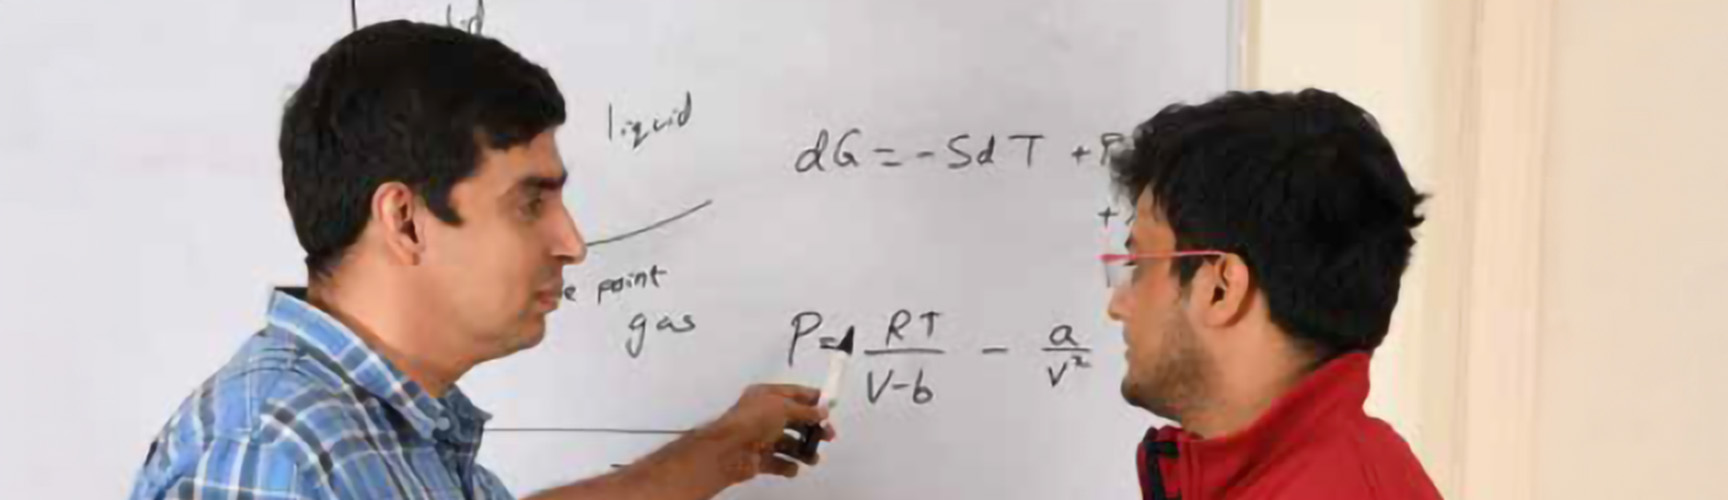 liquid
dG = - SdT + P
+
point
gas
P = RT / V-b - a / V²